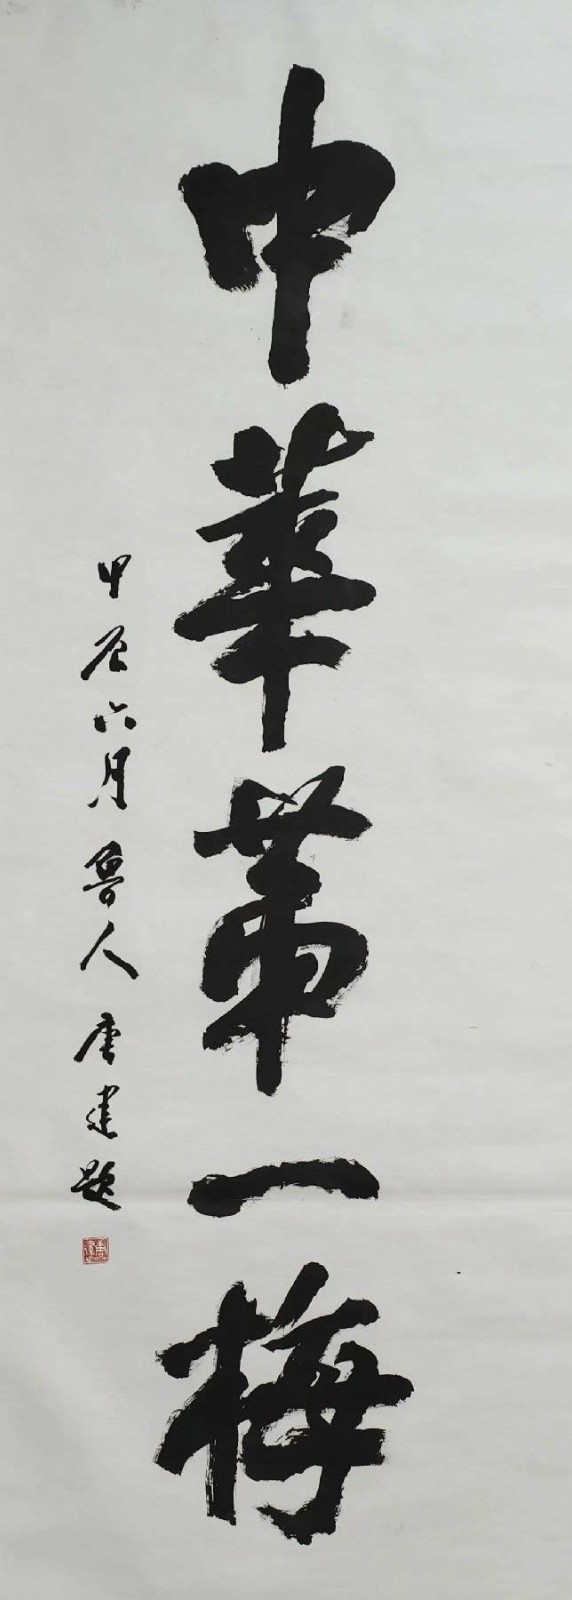 中華第一梅
甲辰六月魯人唐建題